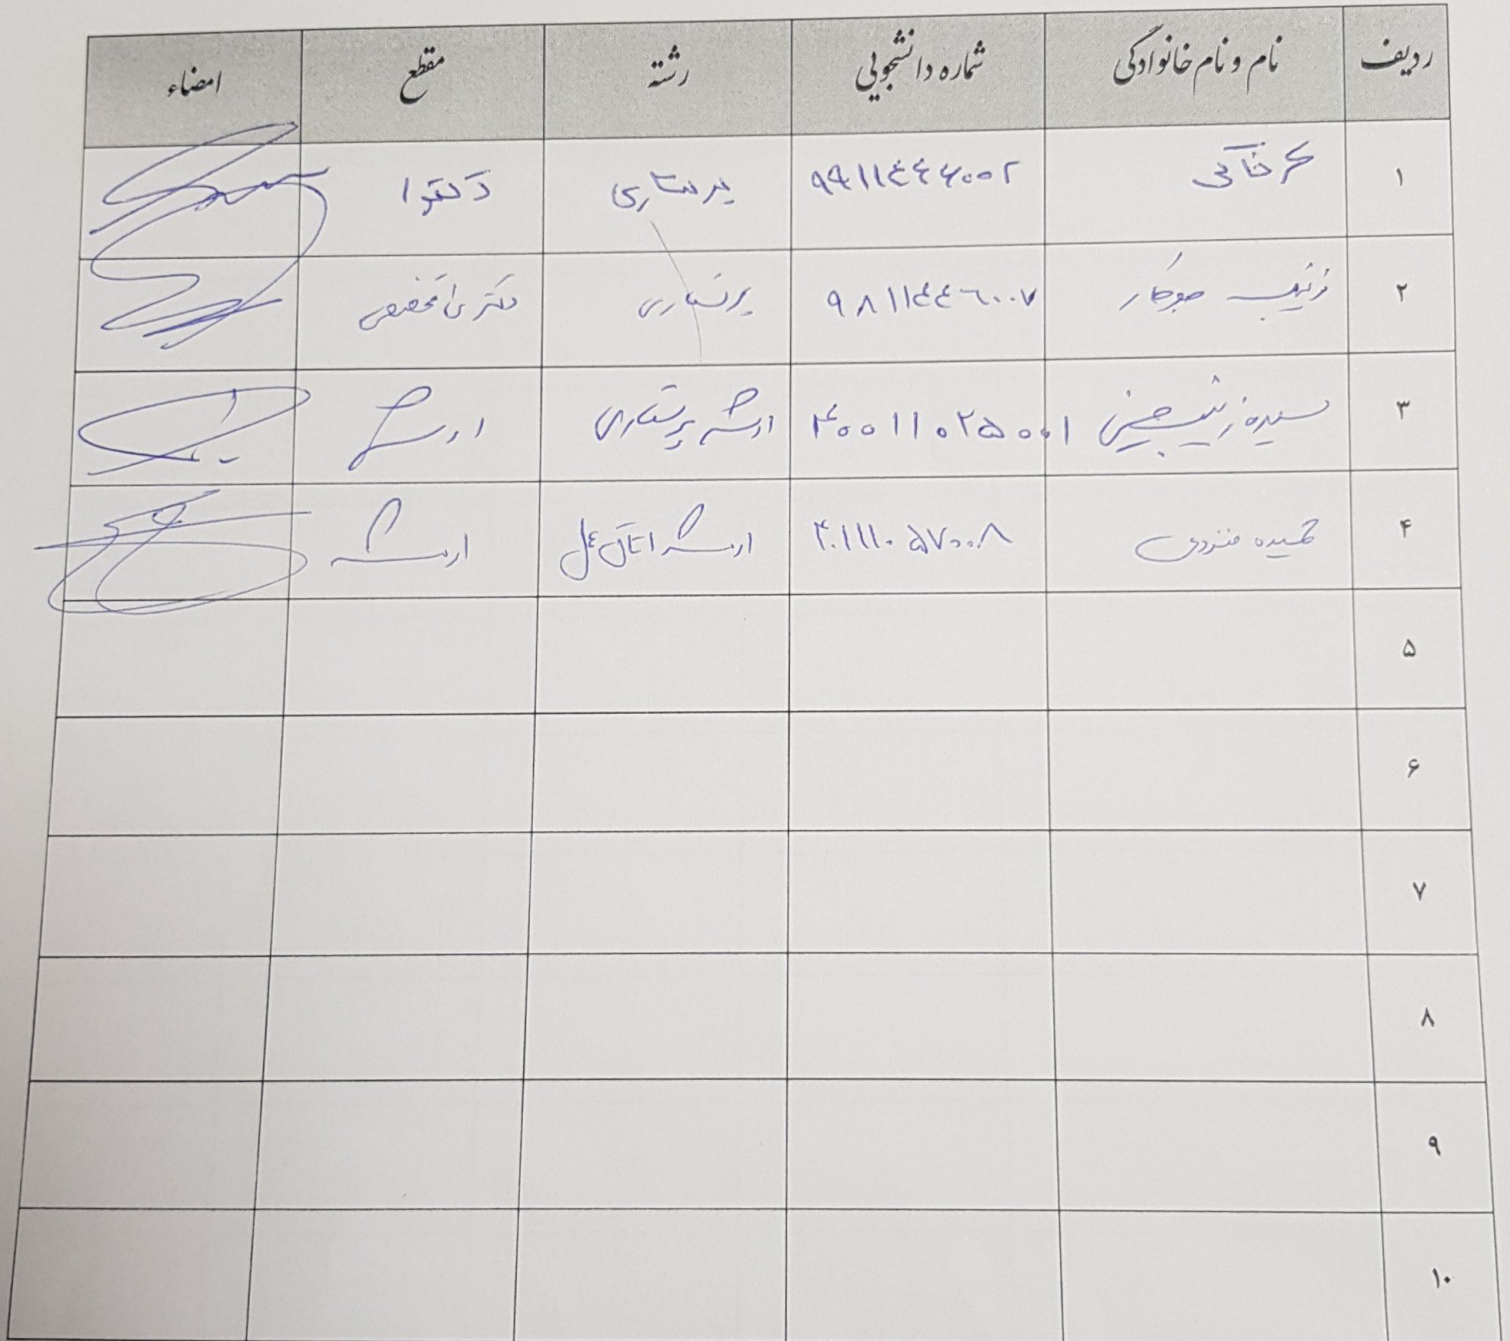 ردیف نام و نام خانوادگی شماره دانشجویی رشته مقطع امضاء
۱ خاکی ۹۹۱۱۴۴۶۰۰۲ پرستاری دکترا
۲ زینب جوکار ۹۸۱۱۴۴۶۰۰۷ پرستاری دکتری تخصصی
۳ سیده زینب حسینی ۴۰۰۱۱۰۲۵۰۰۱ ارشد پرستاری ارشد
۴ حمیده ۴۰۱۱۱۰۵۷۰۰۸ ارشد اتاق عمل ارشد
۵
۶
۷
۸
۹
۱۰